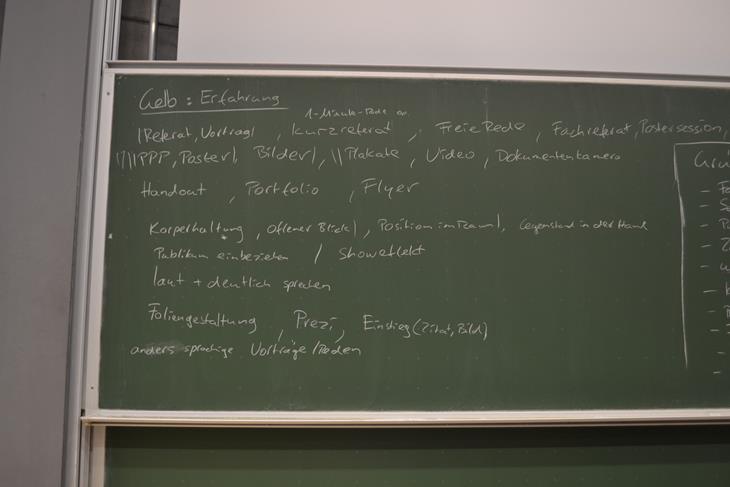 Gelb: Erfahrung
1-Minute-Rede
|Referat, Vortrag|, Kurzreferat, Freie Rede, Fachreferat, Postersession,
PPP, Poster|, Bilder|, ||Plakate, Video, Dokumentenkamera
Handout, Portfolio, Flyer
Körperhaltung, offener Blick|, Position im Raum|, Gegenstand in der Hand
Publikum einbeziehen / Showeffekt
laut + deutlich sprechen
Foliengestaltung, Prezi, Einstieg (Zitat, Bild)
anders sprachige Vorträge/Reden